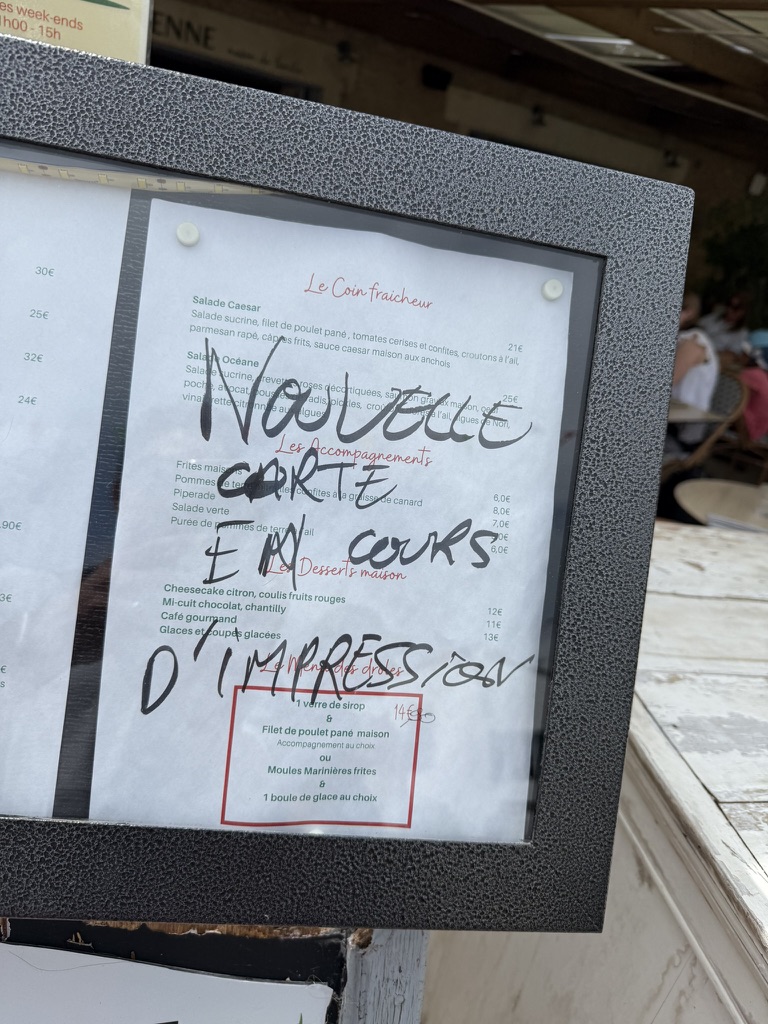 es week-ends
1h00 - 15h
ENNE
30€
25€
32€
24€
.90€
3€
€
s
Le Coin fraicheur
Salade Caesar
Salade sucrine, filet de poulet pané, tomates cerises et confites, croutons à l'ail, 21€
parmesan rapé, câpres frits, sauce caesar maison aux anchois
Salade Océane
Salade sucrine, crevettes roses décortiquées, saumon gravlax maison, oeuf 25€
poché, avocat, radis, pickles, à l'ail, algues de Nori,
NOUVELLE
Les Accompagnements
Frites maison 6,0€
Pommes de confites à la graisse de canard 8,0€
CARTE
Piperade 7,0€
Salade verte
Purée de pommes de terre ail 6,0€
EN COURS
Les Desserts maison
Cheesecake citron, coulis fruits rouges 12€
Mi-cuit chocolat, chantilly 11€
Café gourmand 13€
Glaces et coupes glacées
D'IMPRESSION
Le Menu des drôles
1 verre de sirop 14€
&
Filet de poulet pané maison
Accompagnement au choix
ou
Moules Marinières frites
&
1 boule de glace au choix